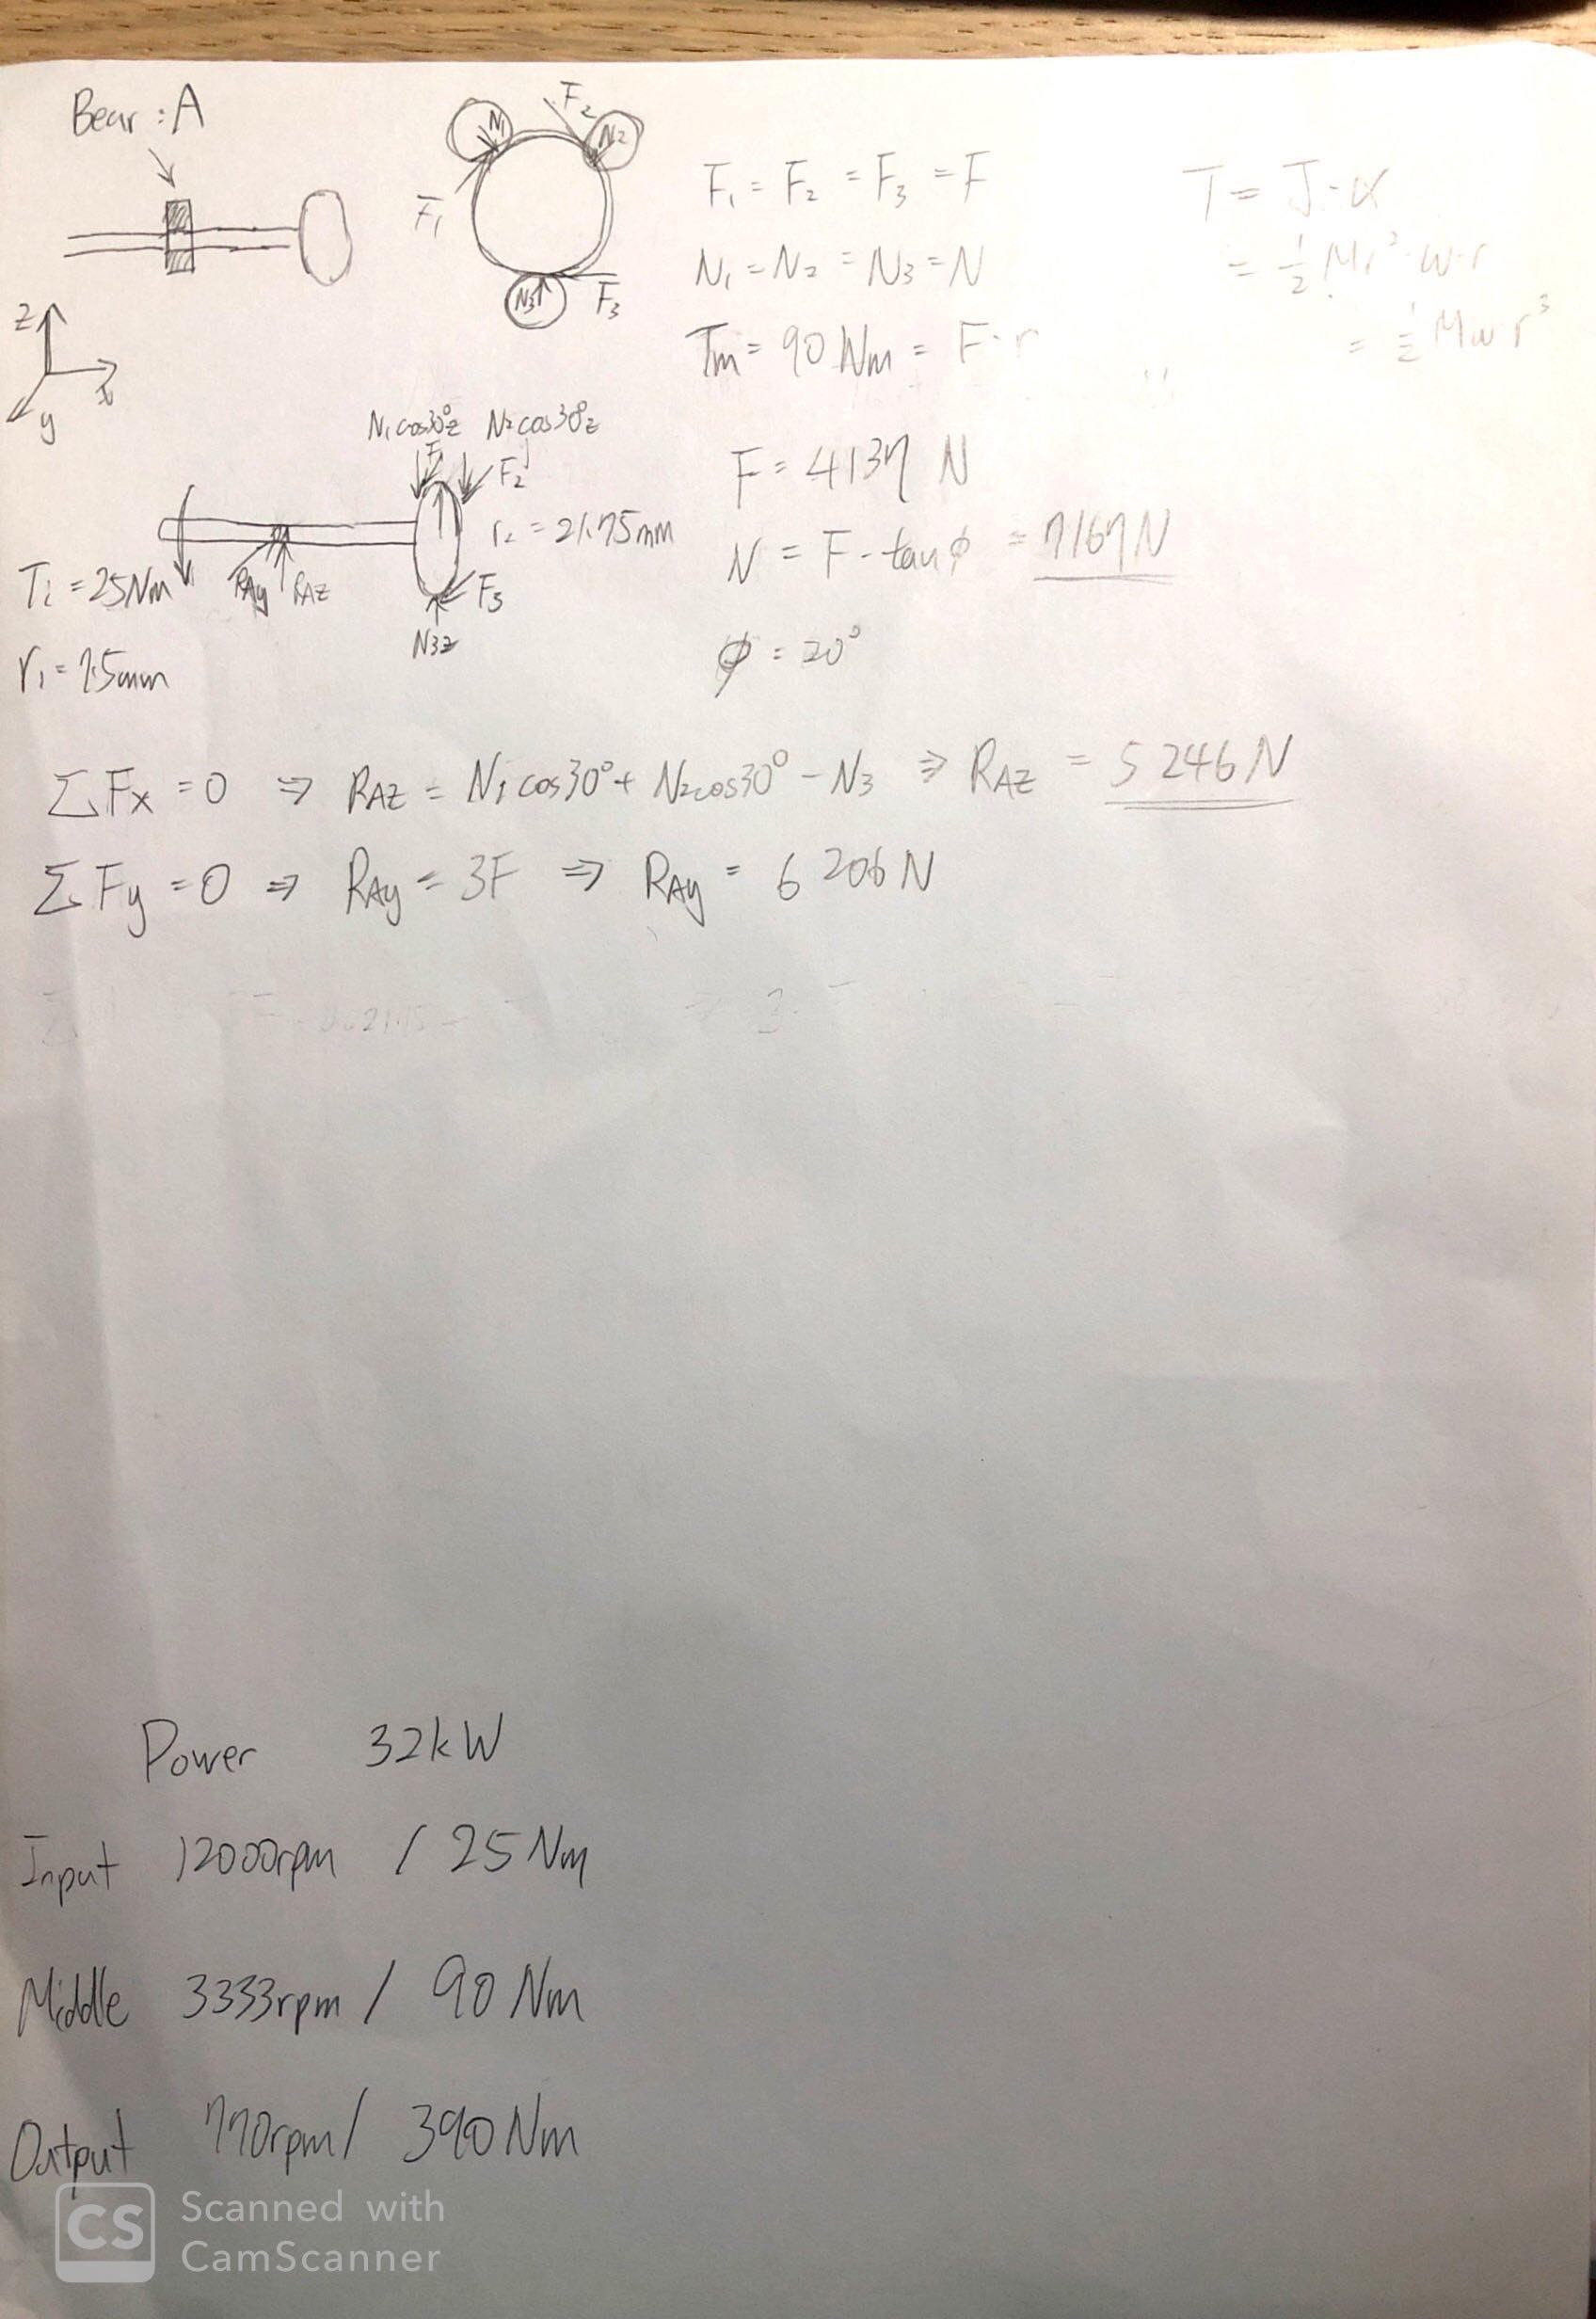 Bear : A
N1 F2 N2
F1
N3 F3
F1 = F2 = F3 = F
N1 = N2 = N3 = N
Tm = 90 Nm = F · r
T = J · α
= 1/2 Mr² · w · r
= 1/2 Mw r³
z
x
y
N1cos30°z N2cos30°z
F1 F2
r2 = 21.75mm
Ti = 25Nm RAy RAz F3
N3z
r1 = 7.5mm
F = 4137 N
N = F · tanϕ = 7167N
ϕ = 20°
ΣFx = 0 ⇒ RAz = N1cos30° + N2cos30° - N3 ⇒ RAz = 5246N
ΣFy = 0 ⇒ RAy = 3F ⇒ RAy = 6206N
Power 32kW
Input 12000rpm / 25 Nm
Middle 3333rpm / 90 Nm
Output 770rpm / 390 Nm
CS Scanned with
CamScanner